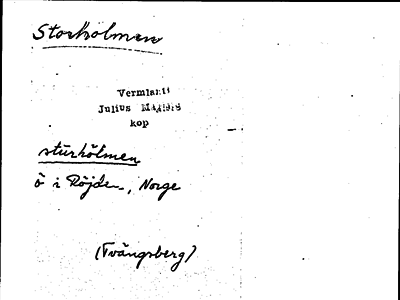 Storholmen
Vermland
Julius
kop
stūrhölmen
ö i Röjden, Norge
(Tvängsberg)